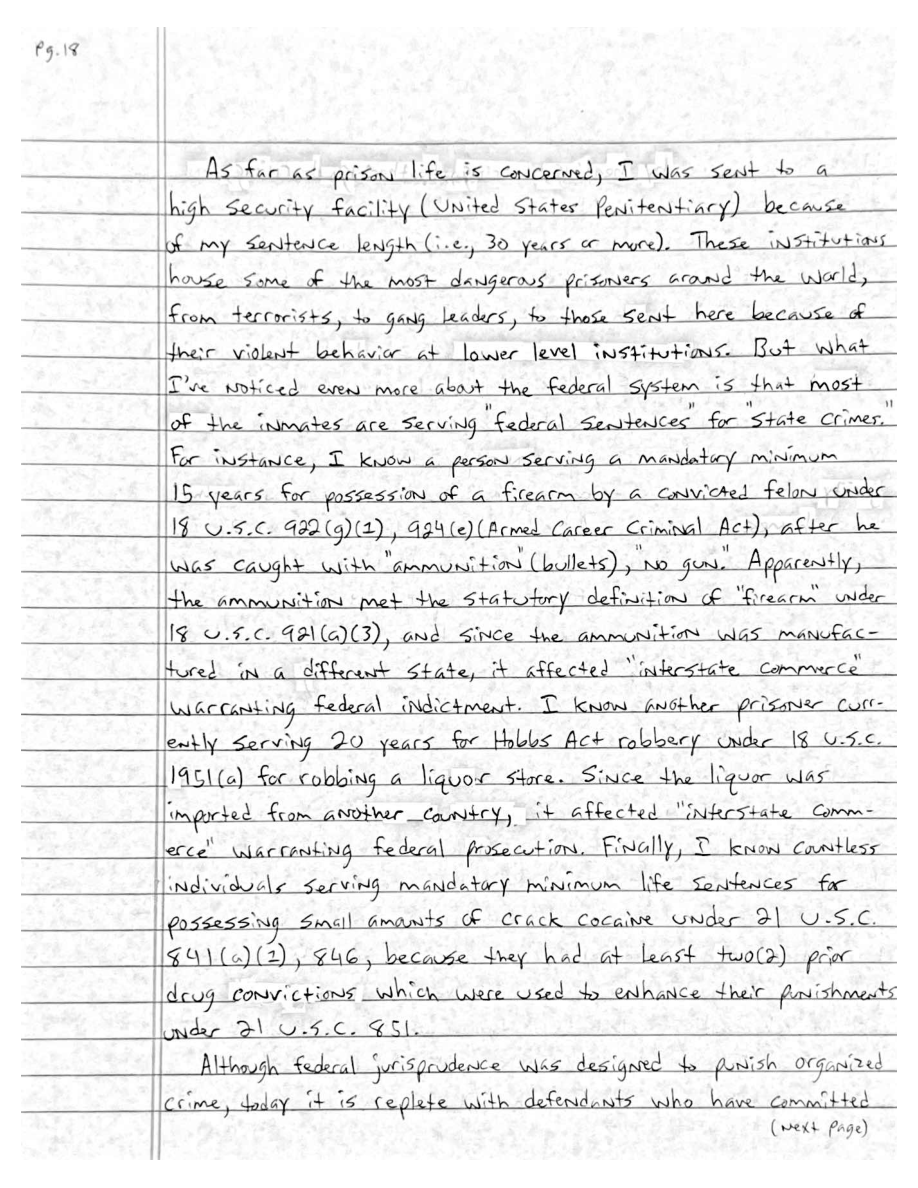 Pg.18
As far as prison life is concerned, I was sent to a
high security facility (United States Penitentiary) because
of my sentence length (i.e., 30 years or more). These institutions
house some of the most dangerous prisoners around the world,
from terrorists, to gang leaders, to those sent here because of
their violent behavior at lower level institutions. But what
I've noticed even more about the federal system is that most
of the inmates are serving "federal sentences" for "state crimes."
For instance, I know a person serving a mandatory minimum
15 years for possession of a firearm by a convicted felon under
18 U.S.C. 922(g)(1), 924(e)(Armed Career Criminal Act), after he
was caught with "ammunition" (bullets), "no gun." Apparently,
the ammunition met the statutory definition of "firearm" under
18 U.S.C. 921(a)(3), and since the ammunition was manufac-
tured in a different state, it affected "interstate commerce"
warranting federal indictment. I know another prisoner curr-
ently serving 20 years for Hobbs Act robbery under 18 U.S.C.
1951(a) for robbing a liquor store. Since the liquor was
imported from another country, it affected "interstate comm-
erce" warranting federal prosecution. Finally, I know countless
individuals serving mandatory minimum life sentences for
possessing small amounts of crack cocaine under 21 U.S.C.
841(a)(1), 846, because they had at least two(2) prior
drug convictions which were used to enhance their punishments
under 21 U.S.C. 851.
Although federal jurisprudence was designed to punish organized
crime, today it is replete with defendants who have committed
(Next Page)